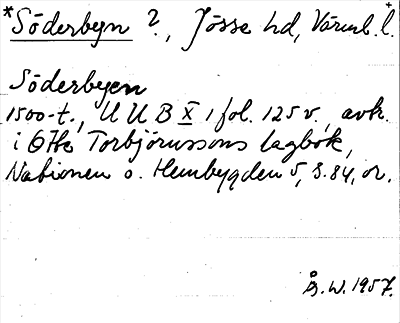 *Söderbyn ?, Jösse hd, Värml. l.+
Söderbyen
1500-t., U U B X 1 fol. 125 v., avkr.
i Otte Torbjörnssons lagbok,
Nationen o. Hembygden 5, s. 84, or.
Å. W. 1957.